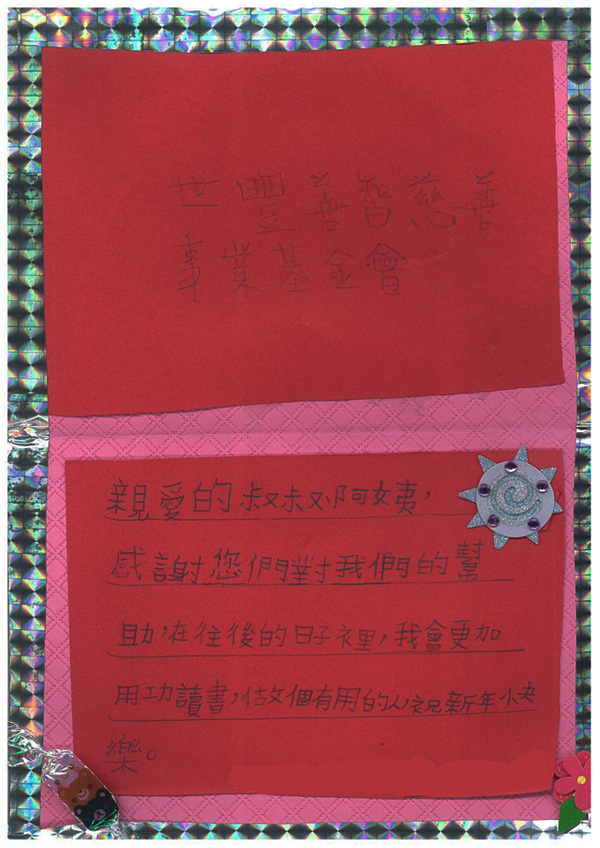 世豐善智慈善
事業基金會
親愛的叔叔、阿姨，
感謝您們對我們的幫
助，在往後的日子裡，我會更加
用功讀書，做個有用的人，祝新年快
樂。